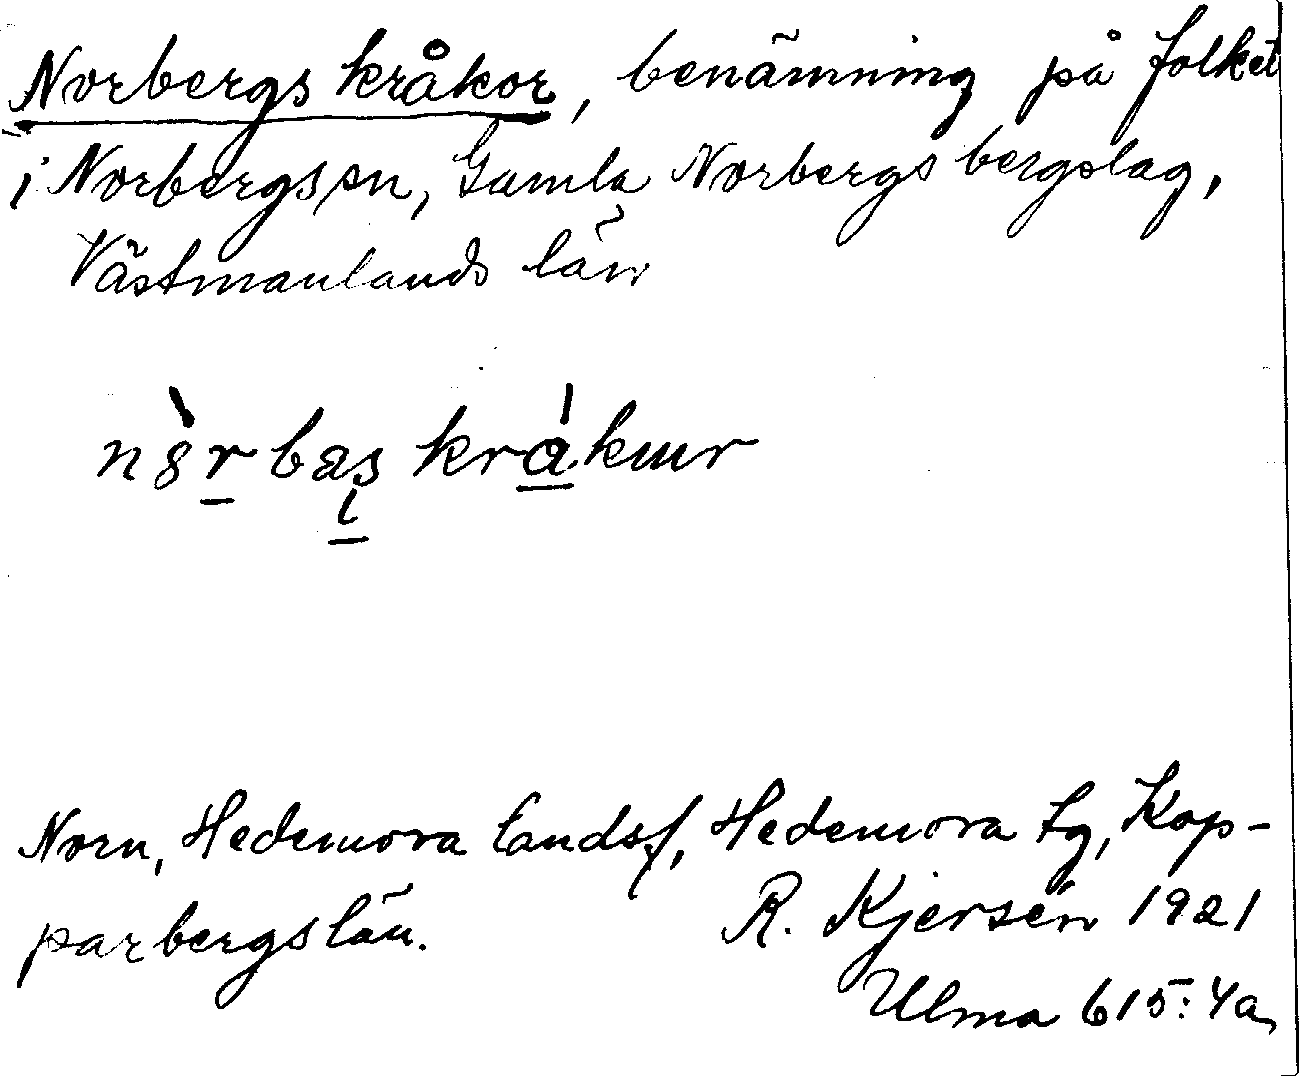 Norbergs kråkor, benämning på folket
i Norbergs sn, Gamla Norbergs bergslag,
Västmanlands län
Norn, Hedemora landsf, Hedemora tg, Kop-
parbergs län. R. Kjersén 1921
Ulma 615:4a